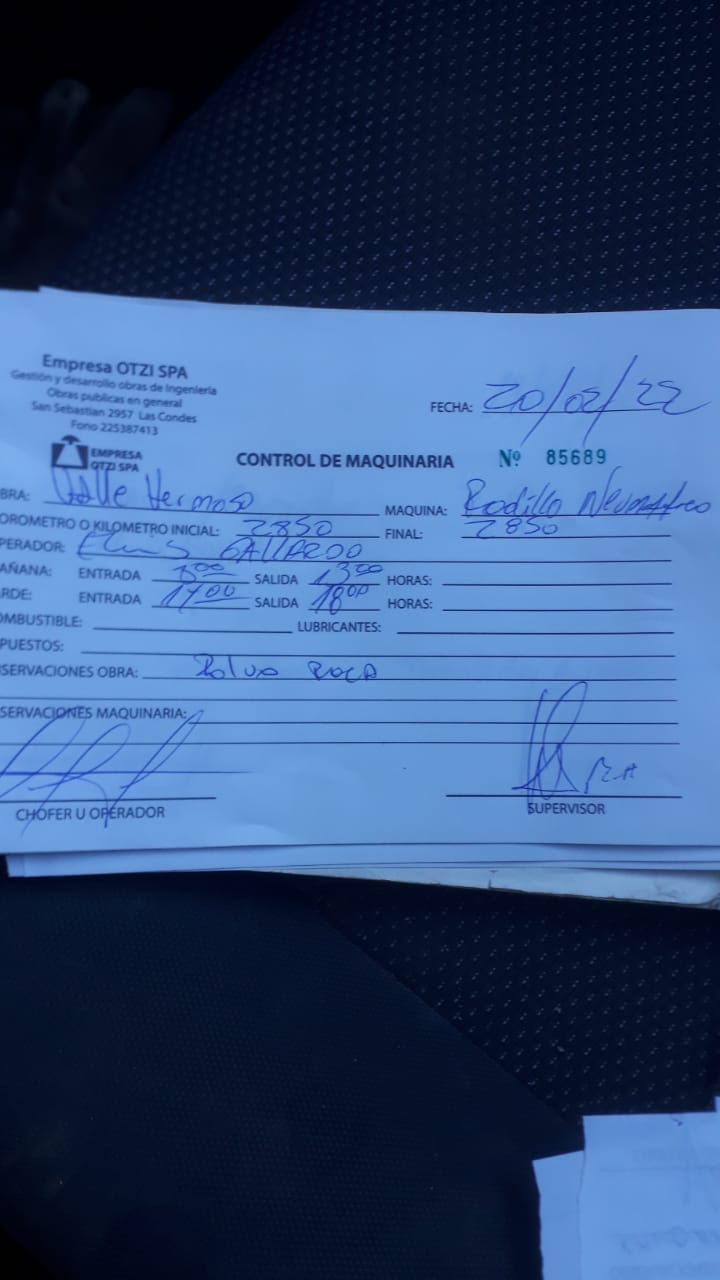 Empresa OTZI SPA
Gestión y desarrollo obras de Ingeniería
Obras publicas en general
San Sebastian 2957 Las Condes
Fono 225387413
FECHA: 20/02/22
EMPRESA
OTZI SPA
CONTROL DE MAQUINARIA Nº 85689
BRA: Valle Hermoso MAQUINA: Rodillo Neumatico
OROMETRO O KILOMETRO INICIAL: 2850 FINAL: 2850
PERADOR: GALLARDO
AÑANA: ENTRADA 8:00 SALIDA 13:00 HORAS:
RDE: ENTRADA 14:00 SALIDA 18:00 HORAS:
OMBUSTIBLE: LUBRICANTES:
PUESTOS:
SERVACIONES OBRA: Polvo ROCA
SERVACIONES MAQUINARIA:
CHOFER U OPERADOR SUPERVISOR